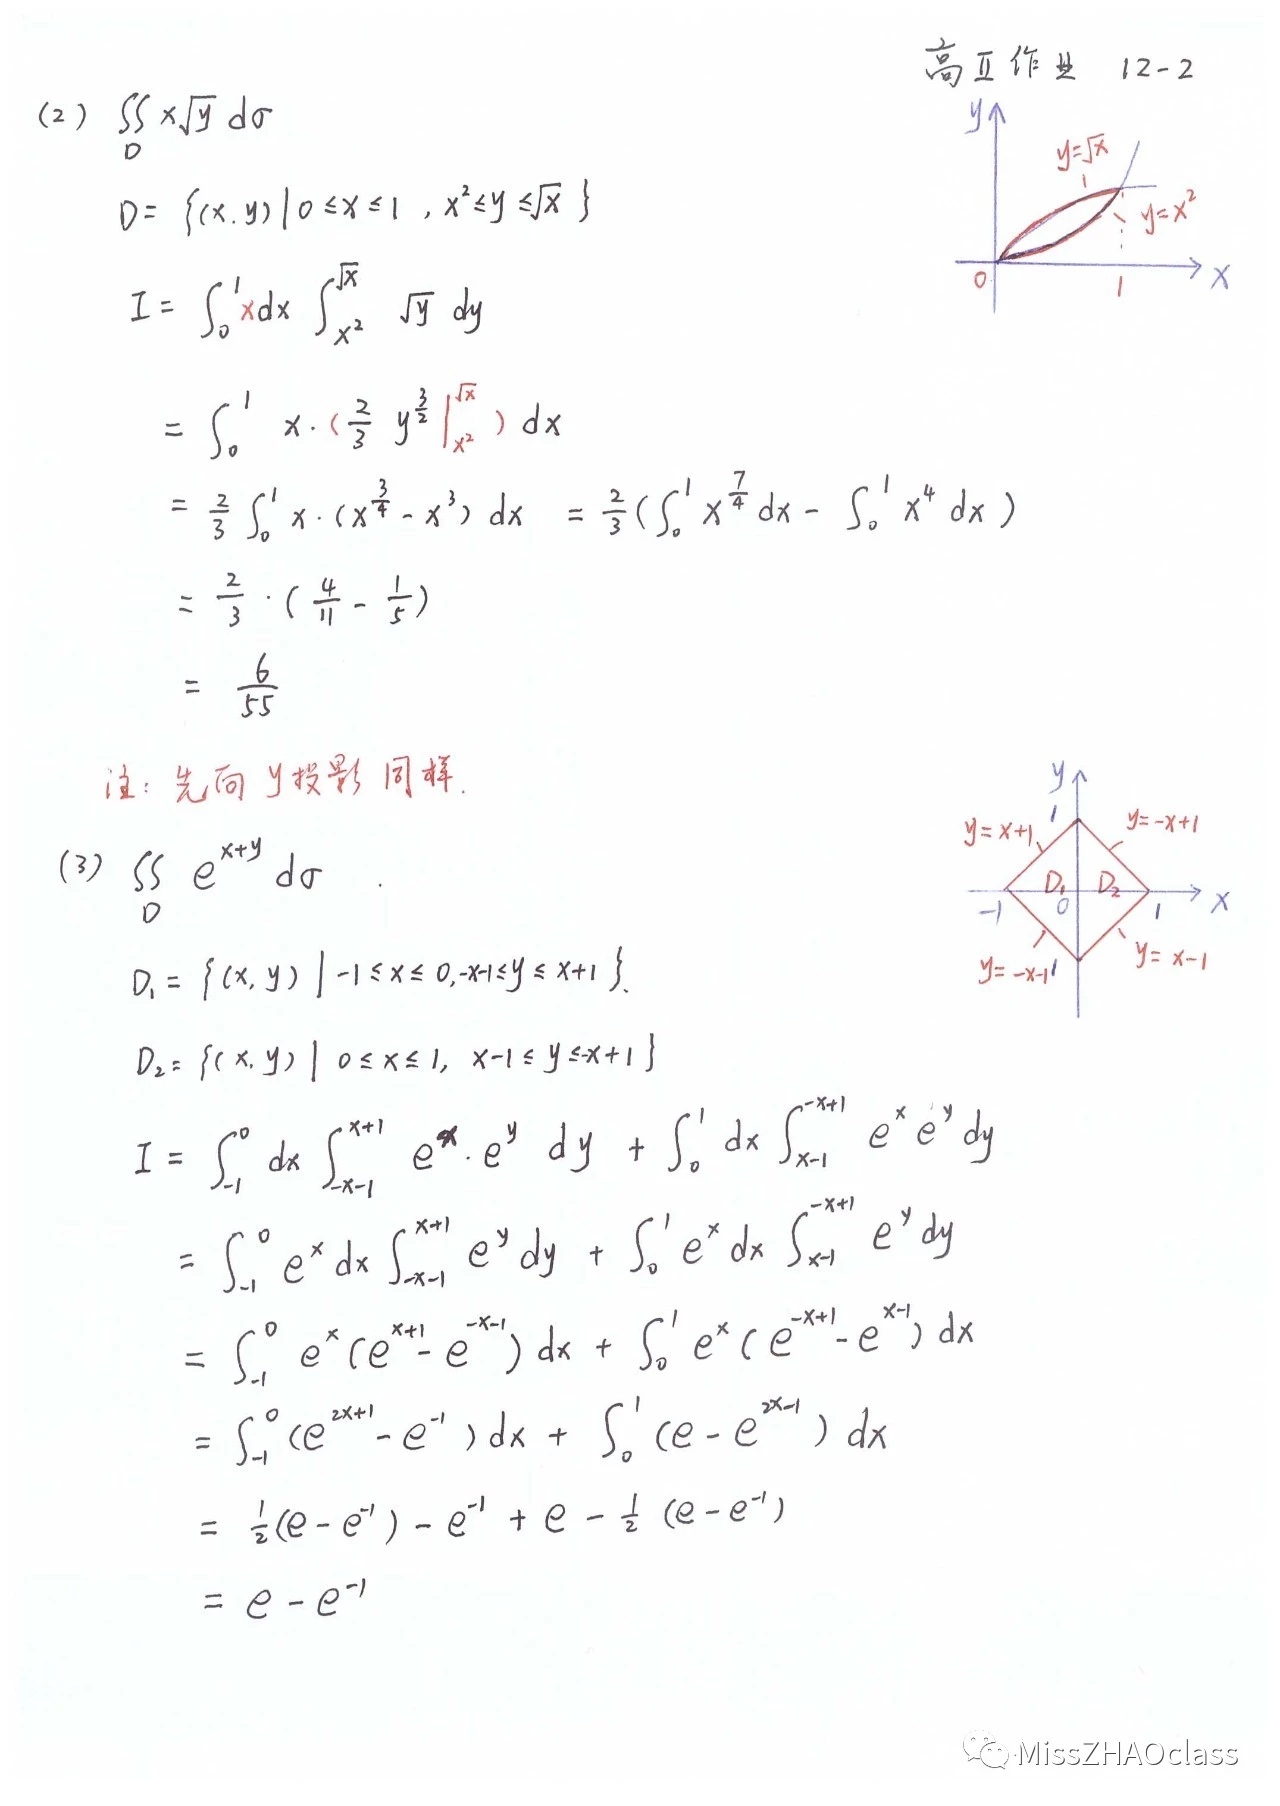 高Ⅱ作业 12-2
(2) ∬_D x√y dσ
y
y=√x
y=x²
0
1
x
D= {(x,y)|0≤x≤1, x²≤y≤√x}
I = ∫_0^1 xdx ∫_{x²}^{√x} √y dy
= ∫_0^1 x·(2/3 y^{3/2}|_{x²}^{√x}) dx
= 2/3 ∫_0^1 x·(x^{3/4} - x³) dx = 2/3 (∫_0^1 x^{7/4} dx - ∫_0^1 x⁴ dx)
= 2/3 · (4/11 - 1/5)
= 6/55
注: 先向 y投影 同样.
(3) ∬_D e^{x+y} dσ .
y
1
y=x+1
y=-x+1
D₁ D₂
-1 0 1 x
y=-x-1
1
y=x-1
D₁ = {(x,y) | -1≤x≤0, -x-1≤y≤x+1}.
D₂= {(x,y) | 0≤x≤1, x-1≤y≤-x+1}
I = ∫_{-1}^0 dx ∫_{-x-1}^{x+1} e^x·e^y dy + ∫_0^1 dx ∫_{x-1}^{-x+1} e^x e^y dy
= ∫_{-1}^0 e^x dx ∫_{-x-1}^{x+1} e^y dy + ∫_0^1 e^x dx ∫_{x-1}^{-x+1} e^y dy
= ∫_{-1}^0 e^x (e^{x+1} - e^{-x-1}) dx + ∫_0^1 e^x (e^{-x+1} - e^{x-1}) dx
= ∫_{-1}^0 (e^{2x+1} - e^{-1}) dx + ∫_0^1 (e - e^{2x-1}) dx
= 1/2 (e - e^{-1}) - e^{-1} + e - 1/2 (e - e^{-1})
= e - e^{-1}
MissZHAOclass